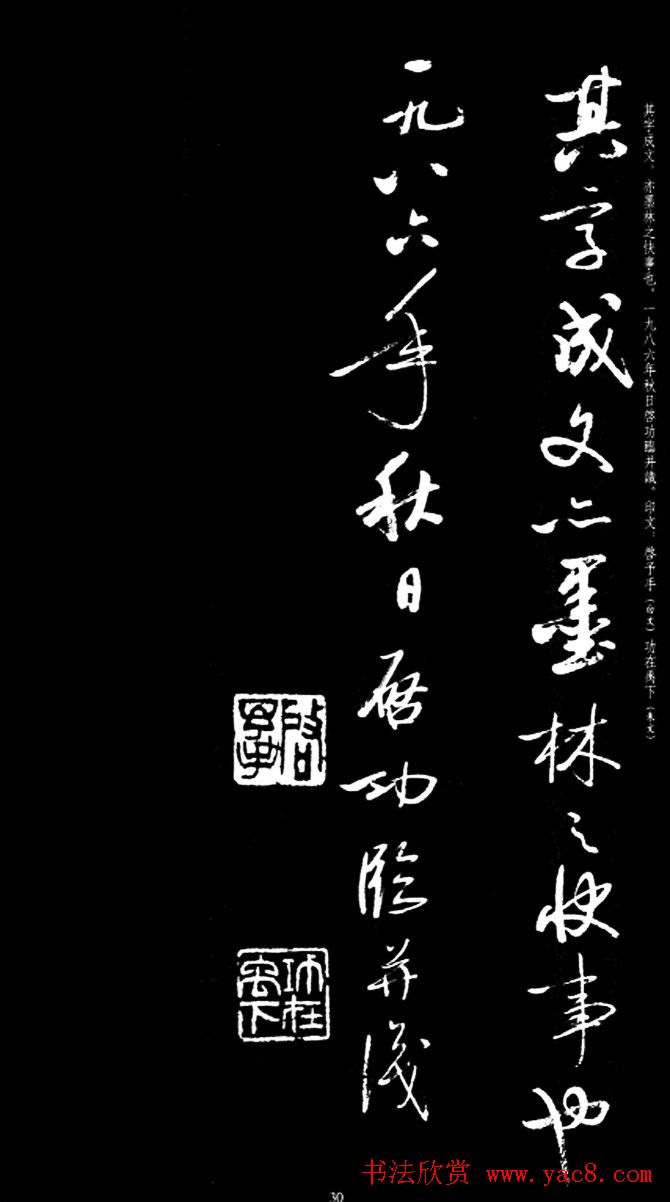 其字成文，亦墨林之快事也。一九八六年秋日啓功臨并識。印文：啓予手（白文）功在禹下（朱文）
其字成文亦墨林之快事也
一九八六年秋日啓功臨并識
啓予手
功在禹下
书法欣赏 www.yac8.com
30